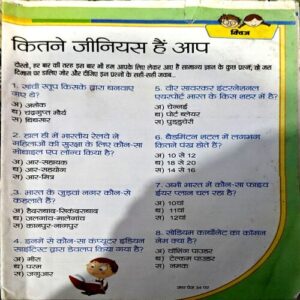 क्विज
कितने जीनियस हैं आप
दोस्तो, हर बार की तरह इस बार भी हम आपके लिए लेकर आए हैं सामान्य ज्ञान के कुछ प्रश्न, तो जरा
दिमाग पर डालिए जोर और दीजिए इन प्रश्नों के सही-सही जवाब...
1. सांची स्तूप किसके द्वारा बनवाए
गए थे?
अ) अशोक
ब) चंद्रगुप्त मौर्य
स) बिंबसार
2. हाल ही में भारतीय रेलवे ने
महिलाओं की सुरक्षा के लिए कौन-सा
मोबाइल एप लॉन्च किया है?
अ) आर-सहायक
ब) आर-सहयोग
स) आर-मित्र
3. भारत के जुड़वां नगर कौन-से
कहलाते हैं?
अ) हैदराबाद-सिकंदराबाद
ब) जलगांव-मालेगांव
स) कानपुर-नागपुर
4. इनमें से कौन-सा कंप्यूटर इंडियन
साइंटिस्ट द्वारा डेवलप किया गया था?
अ) मीरा
ब) परम
स) जगुआर
5. वीर सावरकर इंटरनेशनल
एयरपोर्ट भारत के किस शहर में है?
अ) चेन्नई
ब) पोर्ट ब्लेयर
स) पुडुचुचेरी
6. बैडमिंटन शटल में लगभग
कितने पंख होते हैं?
अ) 10 से 12
ब) 18 से 20
स) 14 से 16
7. अभी भारत में कौन-सा फाइव
ईयर प्लान चल रहा है?
अ) 10वां
ब) 11वां
स) 12वां
8. सोडियम कार्बोनेट का कॉमन
नेम क्या है?
अ) वॉशिंग पाउडर
ब) टेल्कम पाउडर
स) नमक
उत्तर पेज 34 पर